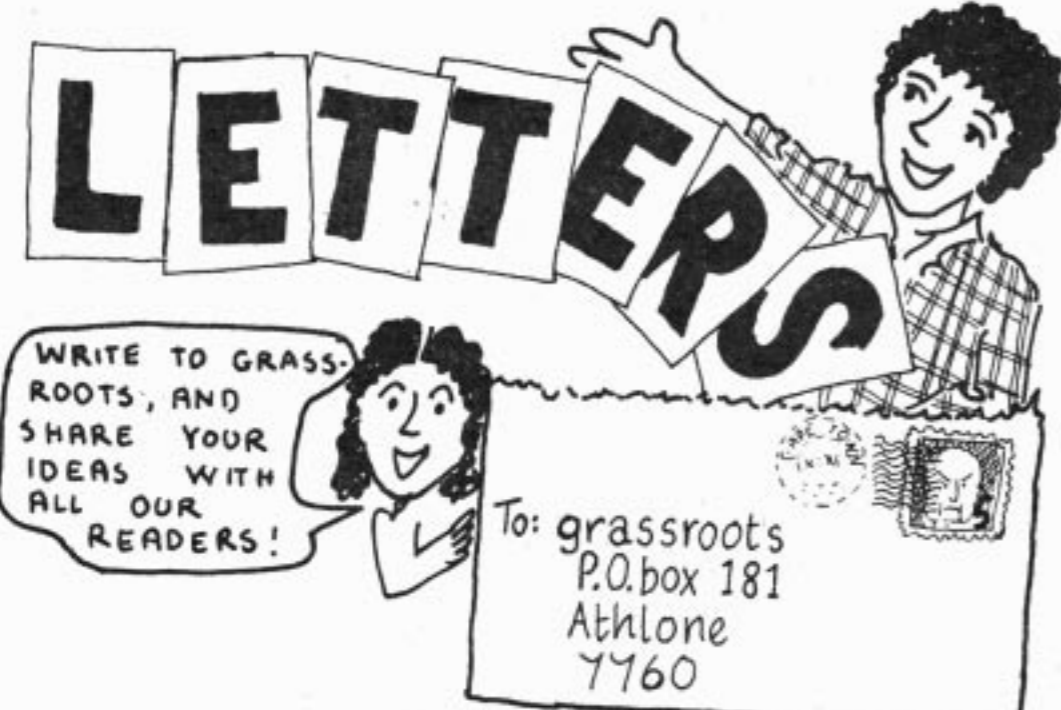 LETTERS
WRITE TO GRASS-
ROOTS, AND
SHARE YOUR
IDEAS WITH
ALL OUR
READERS!
CAPE TOWN
5
To: grassroots
P.O. box 181
Athlone
7760